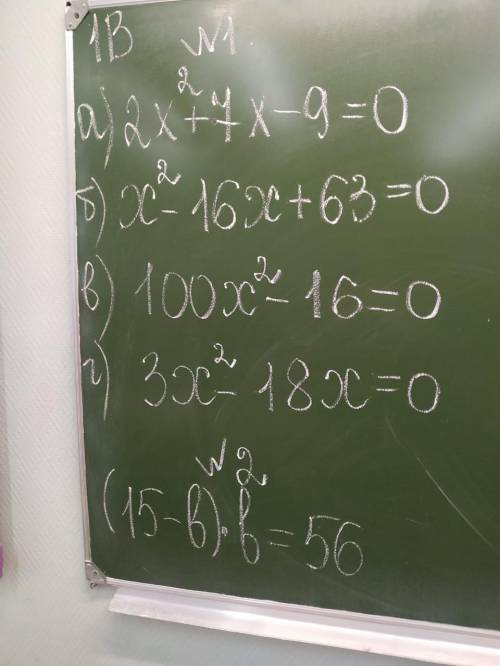 1В №1.
а) 2x²+7x-9=0
б) x²-16x+63=0
в) 100x²-16=0
г) 3x²-18x=0
№2
(15-в)·в=56